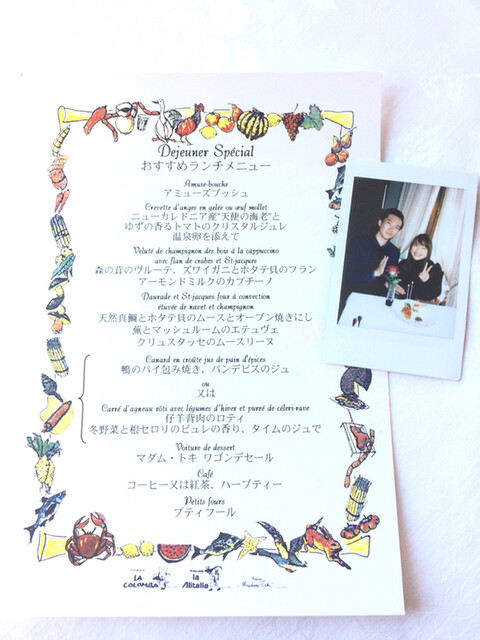 Dejeuner Spécial
おすすめランチメニュー
Amuse-bouche
アミューズブッシュ
Crevette d'anges en gelée ou œuf mollet
ニューカレドニア産"天使の海老"と
ゆずの香るトマトのクリスタルジュレ
温泉卵を添えて
Velouté de champignon des bois à la cappuccino
avec flan de crabes et St-jacques
森の茸のヴルーテ、ズワイガニとホタテ貝のフラン
アーモンドミルクのカプチーノ
Daurade et St-jacques four à convection
étuvée de navet et champignon
天然真鯛とホタテ貝のムースとオーブン焼きにし
蕪とマッシュルームのエテュヴェ
クリュスタッセのムースリーヌ
Canard en croûte jus de pain d'épices
鴨のパイ包み焼き、パンデピスのジュ
ou
又は
Carré d'agneau rôti avec légumes d'hiver et purré de céleri-rave
仔羊背肉のロティ
冬野菜と根セロリのピュレの香り、タイムのジュで
Voiture de dessert
マダム・トキ ワゴンデセール
Café
コーヒー又は紅茶、ハーブティー
Petits fours
プティフール
LA COLOMBA
la Alitalia